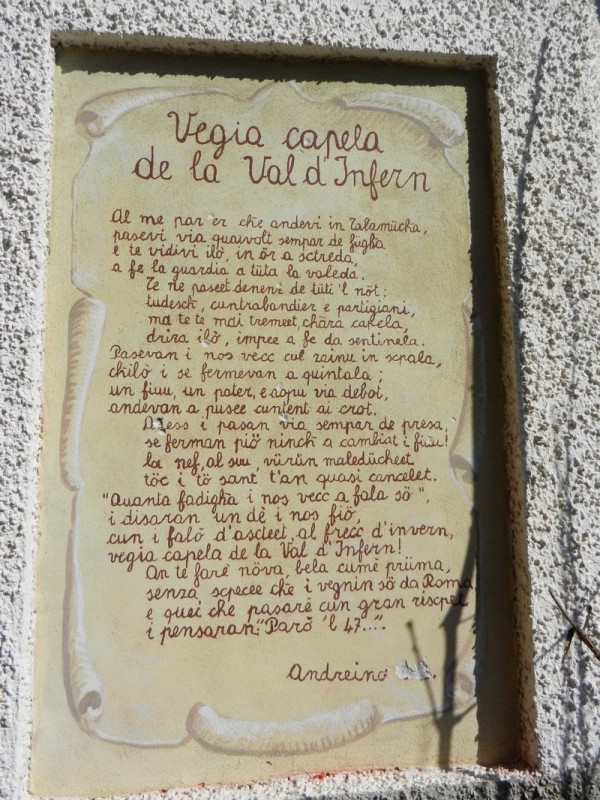 Vegia capela
de la Val d'Infern
Al me par er che andevi in Talamücha,
pasevi via quaivolt sempar de fügha
e te vidivi ilò, in ör a sctreda,
a fe la guardia a tüta la valeda.
Te ne paseet denenz de tüti 'l nöt:
tudesch, cuntrabandier e partigiani,
ma te te mai tremeet, chära capela,
drira ilò, impee a fe da sentinela.
Pasevan i nos vecc cul zainu in scpala,
chilò i se fermevan a quintala;
un fiuu, un pater, e aopu via debot,
andevan a pusee cuntent ai crot.
Adess i pasan via sempar de presa,
se ferman piö ninch a cambiat i fiuu!
la nef, al suu, vürün maledücheet
töc i tö sant t'an quasi cancelet.
"Quanta fadigha i nos vecc a fala sö",
i disaran un dè i nos fiö,
cun i falò d'ascteet, al frecc d'invern,
vegia capela de la Val d'Infern!
An te farè növa, bela cumè prüma,
senza scpecee che i vegnin sö da Roma
e quei che pasarè cun gran riscpet
i pensaran: "Parò 'l 47...".
Andreino